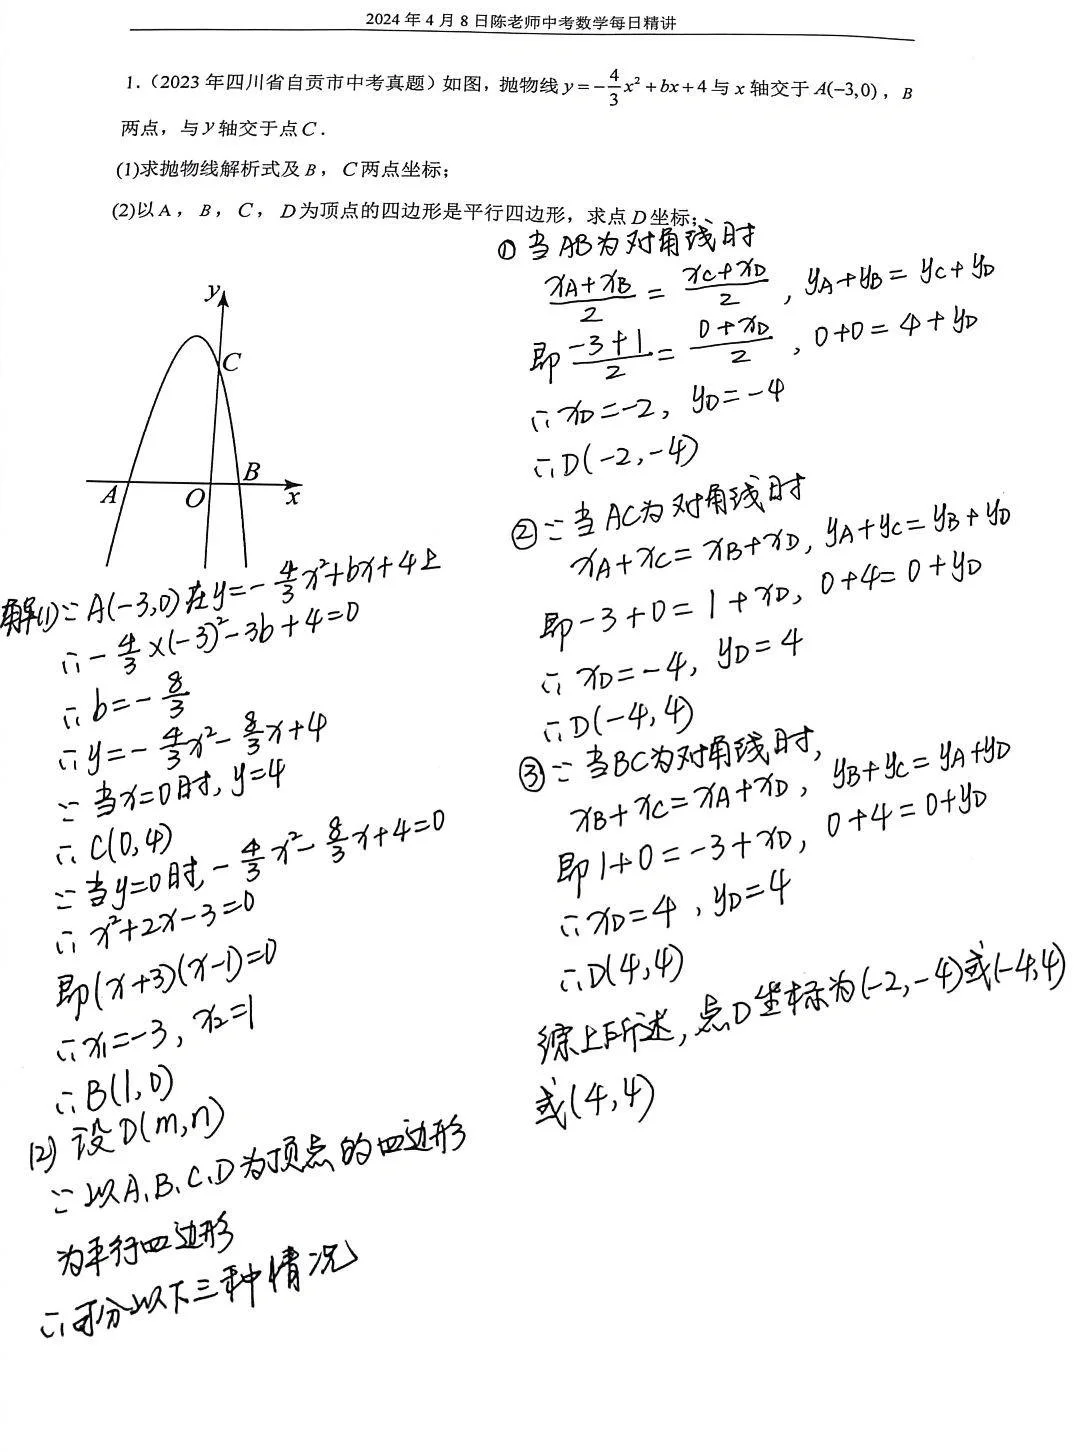 2024年4月8日陈老师中考数学每日精讲
1.（2023年四川省自贡市中考真题）如图，抛物线 y=-4/3x²+bx+4与x轴交于A(-3,0)，B
两点，与y轴交于点C．
(1)求抛物线解析式及B，C两点坐标；
(2)以A，B，C，D为顶点的四边形是平行四边形，求点D坐标；
y
C
A
O
B
x
解(1)∵A(-3,0)在y=-4/3x²+bx+4上
∴-4/3×(-3)²-3b+4=0
∴b=-8/3
∴y=-4/3x²-8/3x+4
∵当x=0时,y=4
∴C(0,4)
∵当y=0时,-4/3x²-8/3x+4=0
∴x²+2x-3=0
即(x+3)(x-1)=0
∴x₁=-3,x₂=1
∴B(1,0)
(2)设D(m,n)
∵以A、B、C、D为顶点的四边形
为平行四边形
∴可分以下三种情况
①当AB为对角线时
(xA+xB)/2=(xC+xD)/2,yA+yB=yC+yD
即(-3+1)/2=(0+xD)/2,0+0=4+yD
∴xD=-2,yD=-4
∴D(-2,-4)
②∵当AC为对角线时
xA+xC=xB+xD,yA+yC=yB+yD
即-3+0=1+xD,0+4=0+yD
∴xD=-4,yD=4
∴D(-4,4)
③∵当BC为对角线时,
xB+xC=xA+xD,yB+yC=yA+yD
即1+0=-3+xD,0+4=0+yD
∴xD=4,yD=4
∴D(4,4)
综上所述,点D坐标为(-2,-4)或(-4,4)
或(4,4)